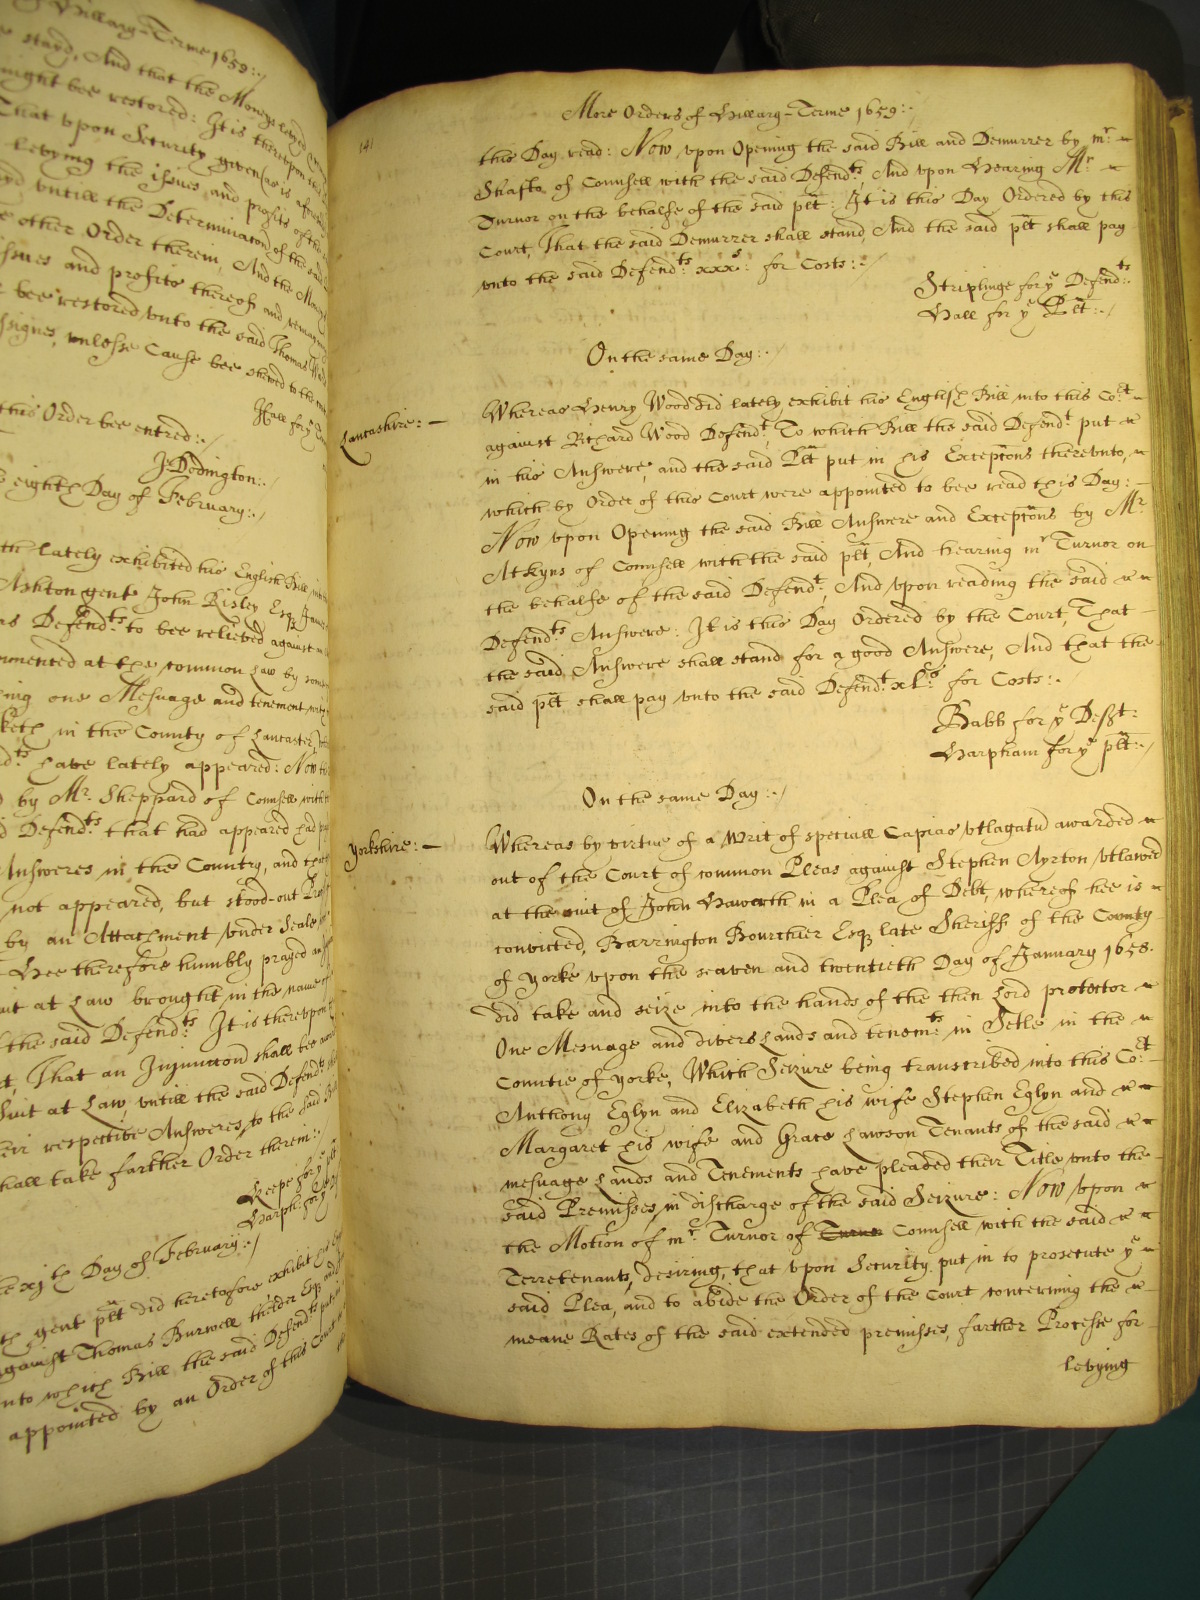 Hillary-Terme 1659:./
stayd, And that the Moneys levyed
might bee restored: It is therevpon
That vpon Security given
levying the issues and profits of the
vntill the Determinacon of the said
other Order therein, And the
issues and profits thereof
bee restored vnto the said Thomas
Assignes, vnlesse Cause bee shewed to the
Hall for ye
this Order bee entred:./
J: Dodington:./
eighth Day of February:./
lately exhibited his English Bill
Ashton gent John Risley Esqr
Defendts: to bee relieved against
commenced at the common Law by
one Mesuage and tenement
in the County of Lancaster,
have lately appeared: Now
by Mr. Sheppard of Counsell with
Defendts: that had appeared had
Answeres in the Country, and
not appeared, but stood-out
by an Attachment vnder Seale
Hee therefore humbly prayed an
suit at Law brought in the name of
the said Defendts: It is therevpon
That an Injunccon shall bee
Suit at Law, vntill the said Defendts
their respective Answeres to the said
shall take farther Order therein:.
Keepe for ye plt
Harph: for ye
xjth Day of February:./
gent plt did heretofore exhibit his
against Thomas Burwell thelder Esqr
vnto which Bill the said Defendts put
appointed by an Order of this Court
141
More Orders of Hillary-Terme 1659:./
this Day read: Now vpon Opening the said Bill and Demurrer by mr.
Shafto of Counsell with the said Defendts:, And vpon Hearing Mr
Turnor on the behalfe of the said plt: It is this Day Ordered by this
Court, That the said Demurrer shall stand, And the said plt shall pay
vnto the said Defendts: xxxs: for Costs:./
Striplinge for ye Defendts:.
Hall for ye Plt:./
On the same Day:./
Lancashire:
Whereas Henry Wood did lately exhibit his English Bill into this Cort:
against Richard Wood Defendt:, To which Bill the said Defendt put
in his Answere, and the said Plt put in his Excepcons therevnto,
which by Order of this Court were appointed to bee read this Day:
Now vpon Opening the said Bill Answere and Excepcons by Mr.
Atkyns of Counsell with the said plt, And hearing mr Turnor on
the behalfe of the said Defendt:, And vpon reading the said
Defendts: Answere: It is this Day Ordered by the Court, That
the said Answere shall stand for a good Answere, And that the
said plt shall pay vnto the said Defendt: xls: for Costs:./
Babb for ye Deft:
Harpham for ye plt:./
On the same Day:./
Yorkshire:
Whereas by virtue of a Writ of speciall Capias vtlagatu awarded
out of the Court of common Pleas against Stephen Ayrton vtlawed
at the suit of John Haworth in a Plea of Debt, whereof hee is
convicted, Barrington Bourchier Esqr late Sheriff of the County
of Yorke vpon the seaven and twentieth Day of January 1658.
did take and seize into the hands of the then Lord protector
One Mesuage and divers Lands and tenemts: in Setle in the
Countie of Yorke, Which Seizure being transcribed into this Cort:
Anthony Eglyn and Elizabeth his wife Stephen Eglyn and
Margaret his wife and Grace Lawson Tenants of the said
mesuage Lands and Tenements have pleaded their Title vnto the
said Premisses in discharge of the said Seizure: Now vpon
the Motion of mr. Turnor of Counsell with the said
Terretenants, desiring, that vpon Security put in to prosecute ye
said Plea, and to abide the Order of the Court concerning the
meane Rates of the said extended premisses, farther Processe for
levying